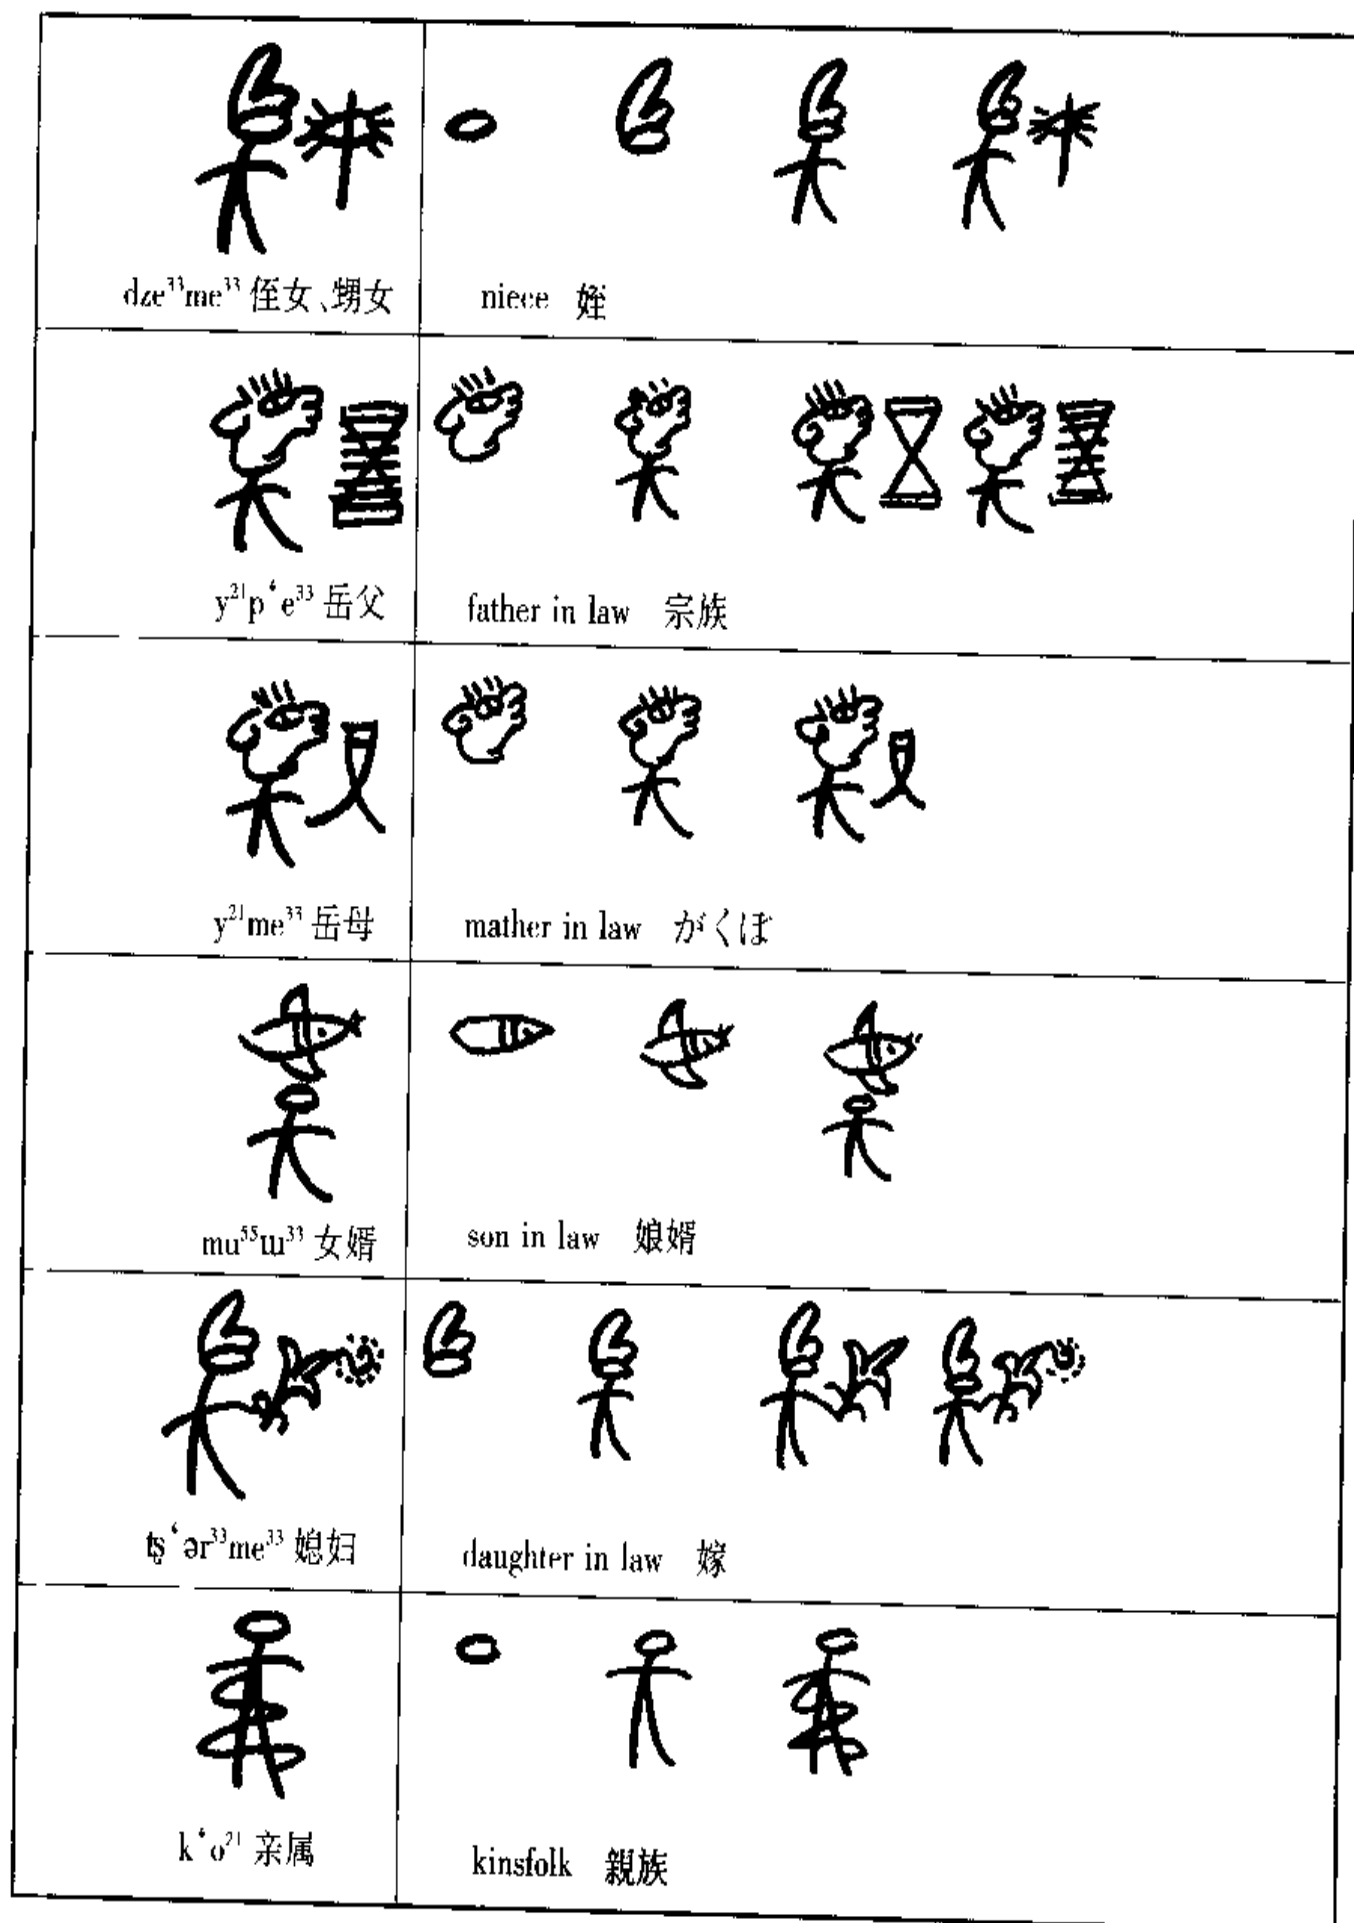 dʑe³³me³³ 侄女、甥女
niece 姪
y²¹p‘e³³ 岳父
father in law 宗族
y²¹me³³ 岳母
mather in law がくぼ
mu⁵⁵ɯ³³ 女婿
son in law 娘婿
tʂ‘ər³³me³³ 媳妇
daughter in law 嫁
k‘o²¹ 亲属
kinsfolk 親族